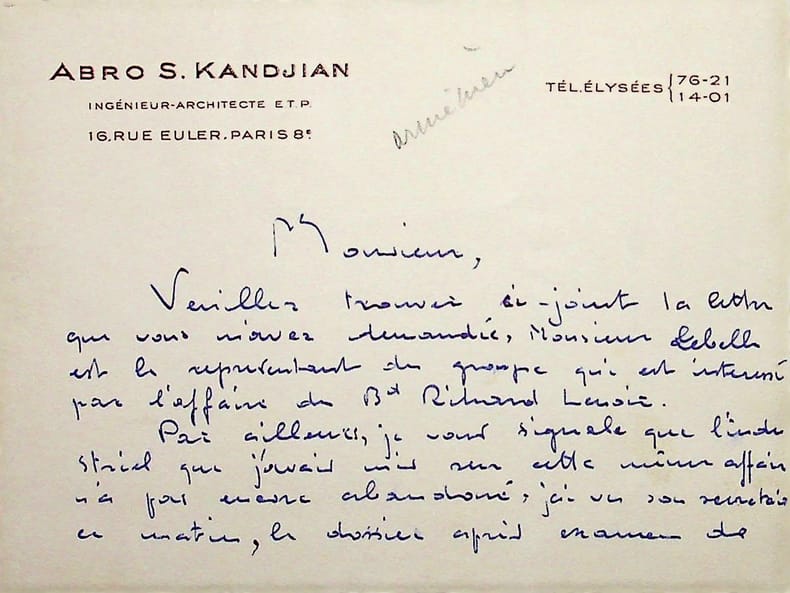 ABRO S. KANDJIAN
INGÉNIEUR-ARCHITECTE E.T.P.
16, RUE EULER. PARIS 8e
TÉL. ÉLYSÉES { 76-21
14-01
arménien
Monsieur,
Veuillez trouver ci-joint la lettre
que vous m'avez demandée, Monsieur Lebelle
est le représentant du groupe qui est interessé
par l'affaire du Bd Richard Lenoir.
Par ailleurs, je vous signale que l'indu
striel que j'avais mis sur cette même affaire
n'a pas encore abandoné, j'ai vu son secretaire
ce matin, le dossier après examen de